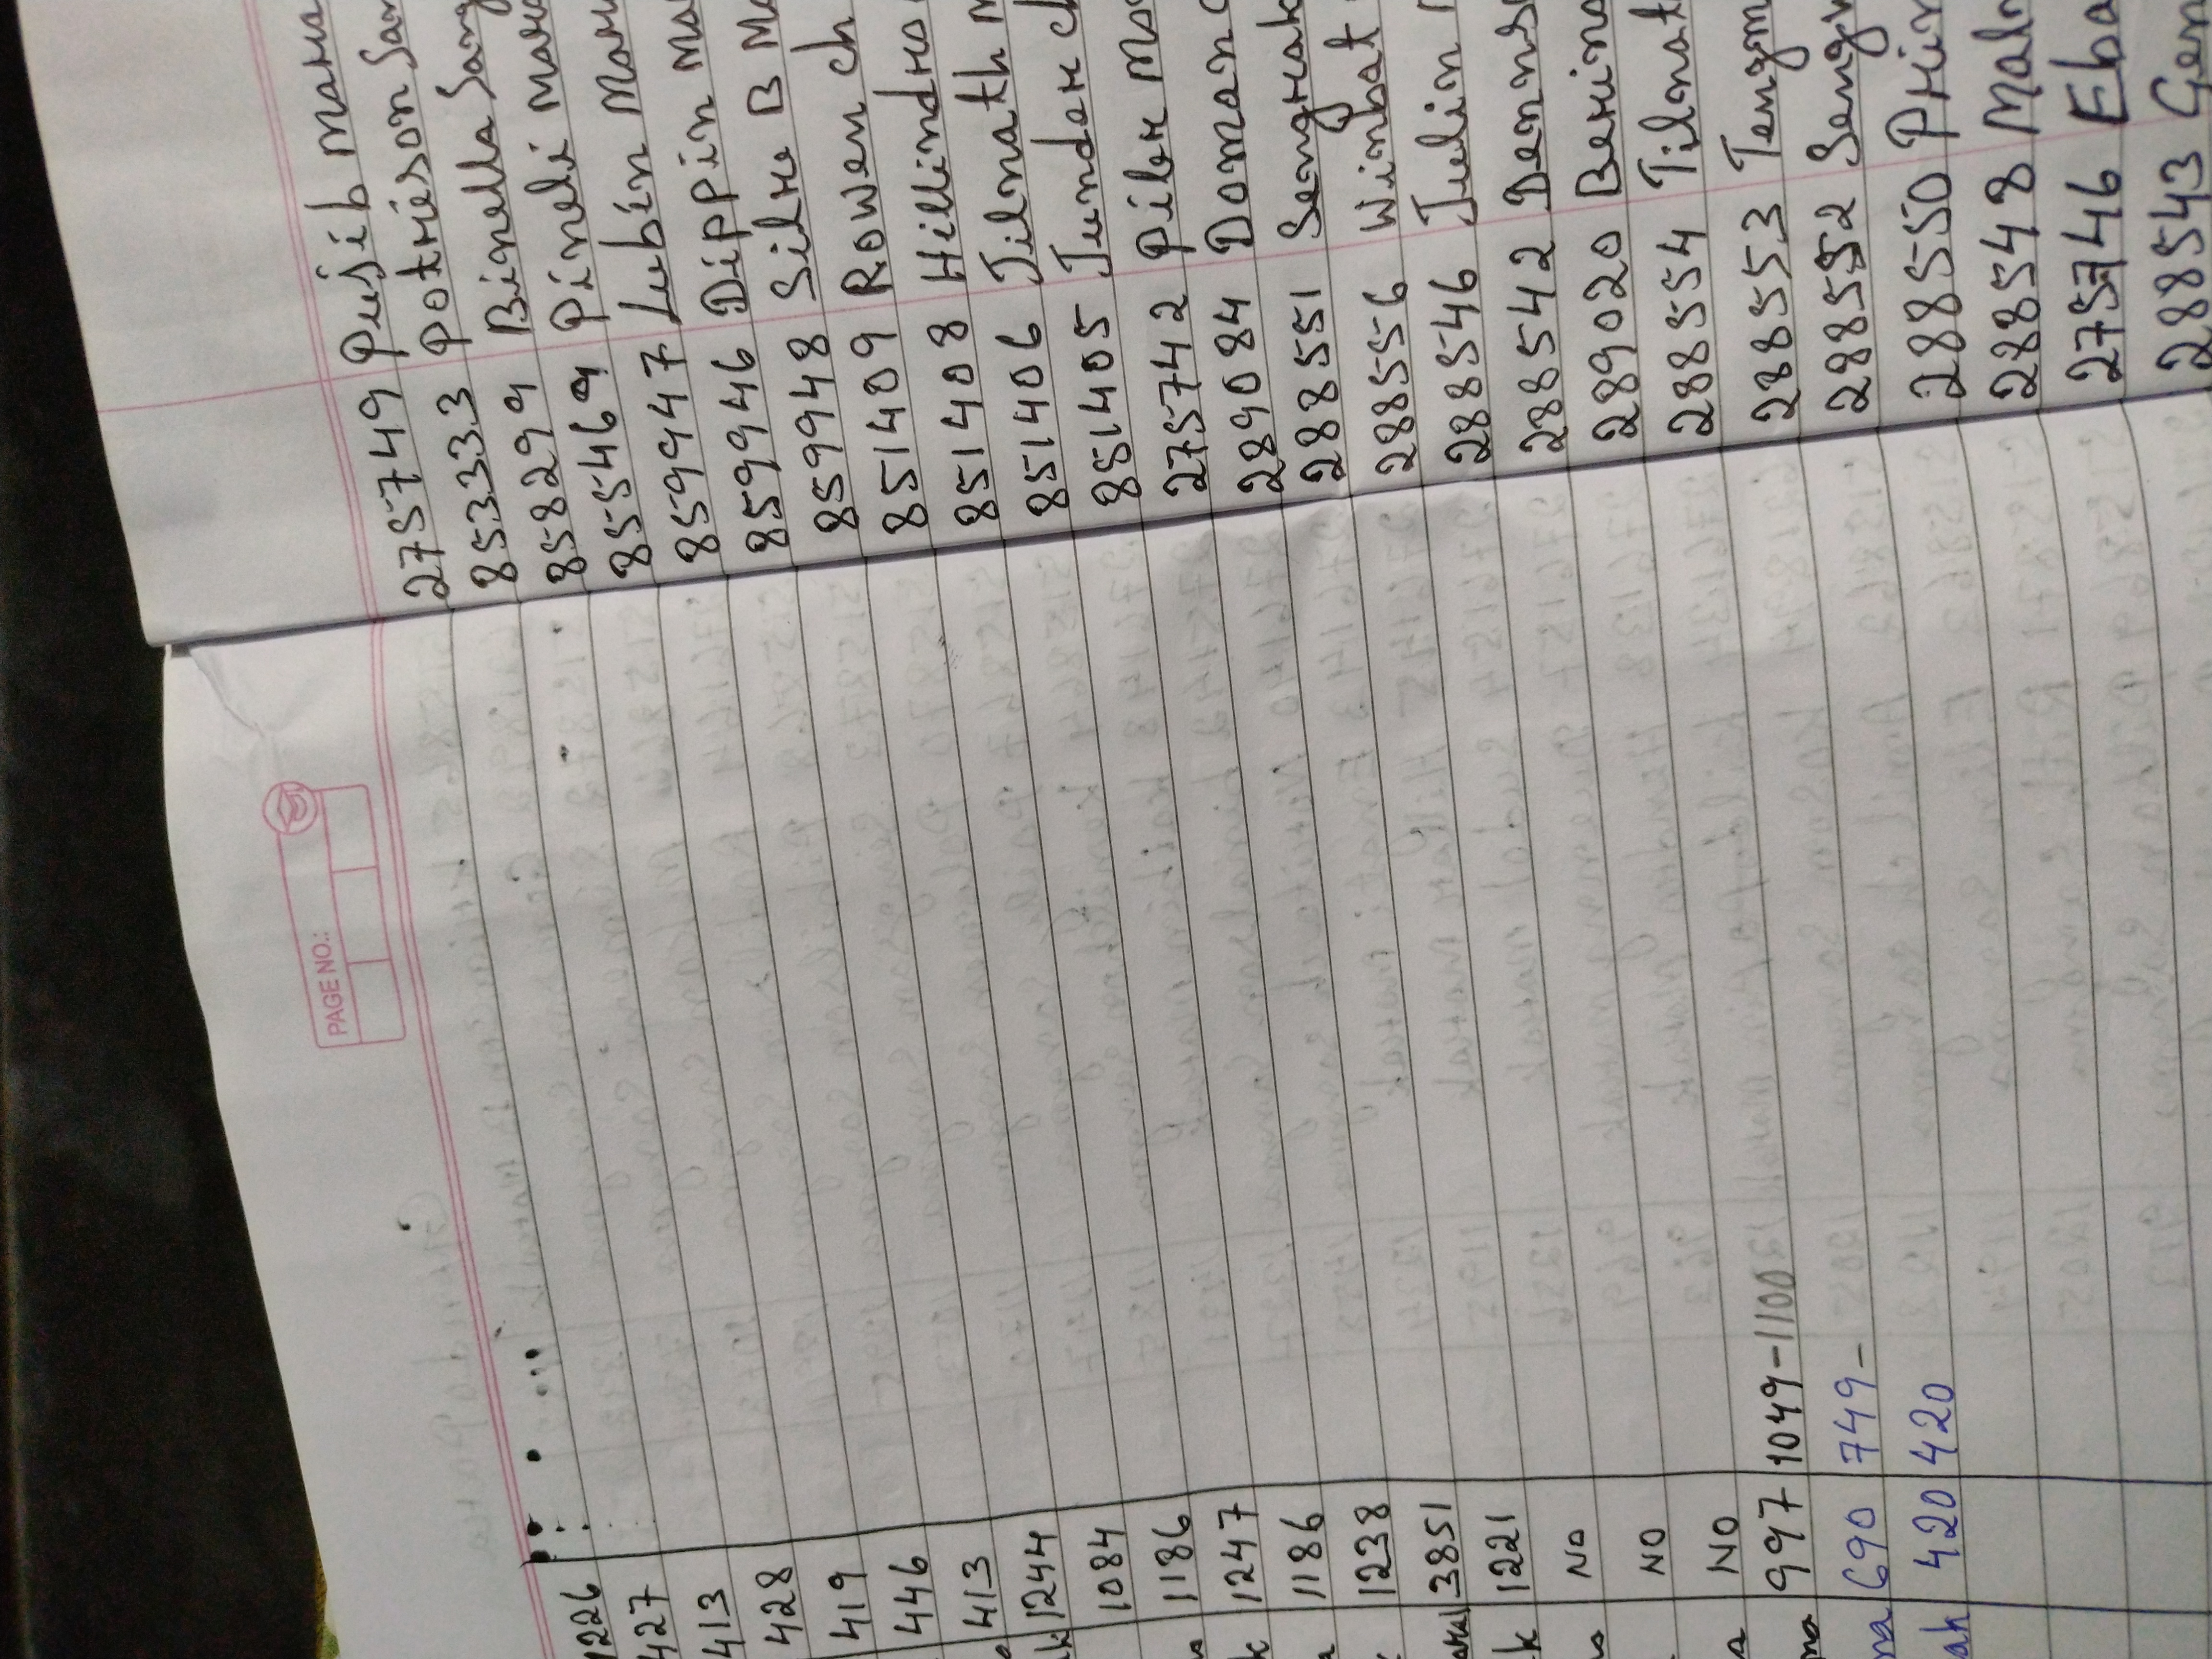 275749 Pusib Mara
853333 Potrieson San
858299 Binella Sang
855469 Pineli Mara
859947 Lubin Mara
859946 Dippin Ma
859948 Silre B Ma
851409 Rowen ch
851408 Hillindro
851406 Jilnath M
851405 Junder ch
275742 Piler Mo
289084 Doman C
288551 Sengrak
288556 Winbat
288546 Julin
288542 Denns
289020 Berina
288554 Tilnat
288553 Tengm
288552 Seng
288550 Prin
288548 Mal
275746 Eba
288543 Gen
PAGE NO.:
1226
427
413
428
419
446
413
1244
1084
1186
1247
1186
1238
3851
k 1221
NO
NO
NO
997 1049-1100
na 690 749-
ak 420 420